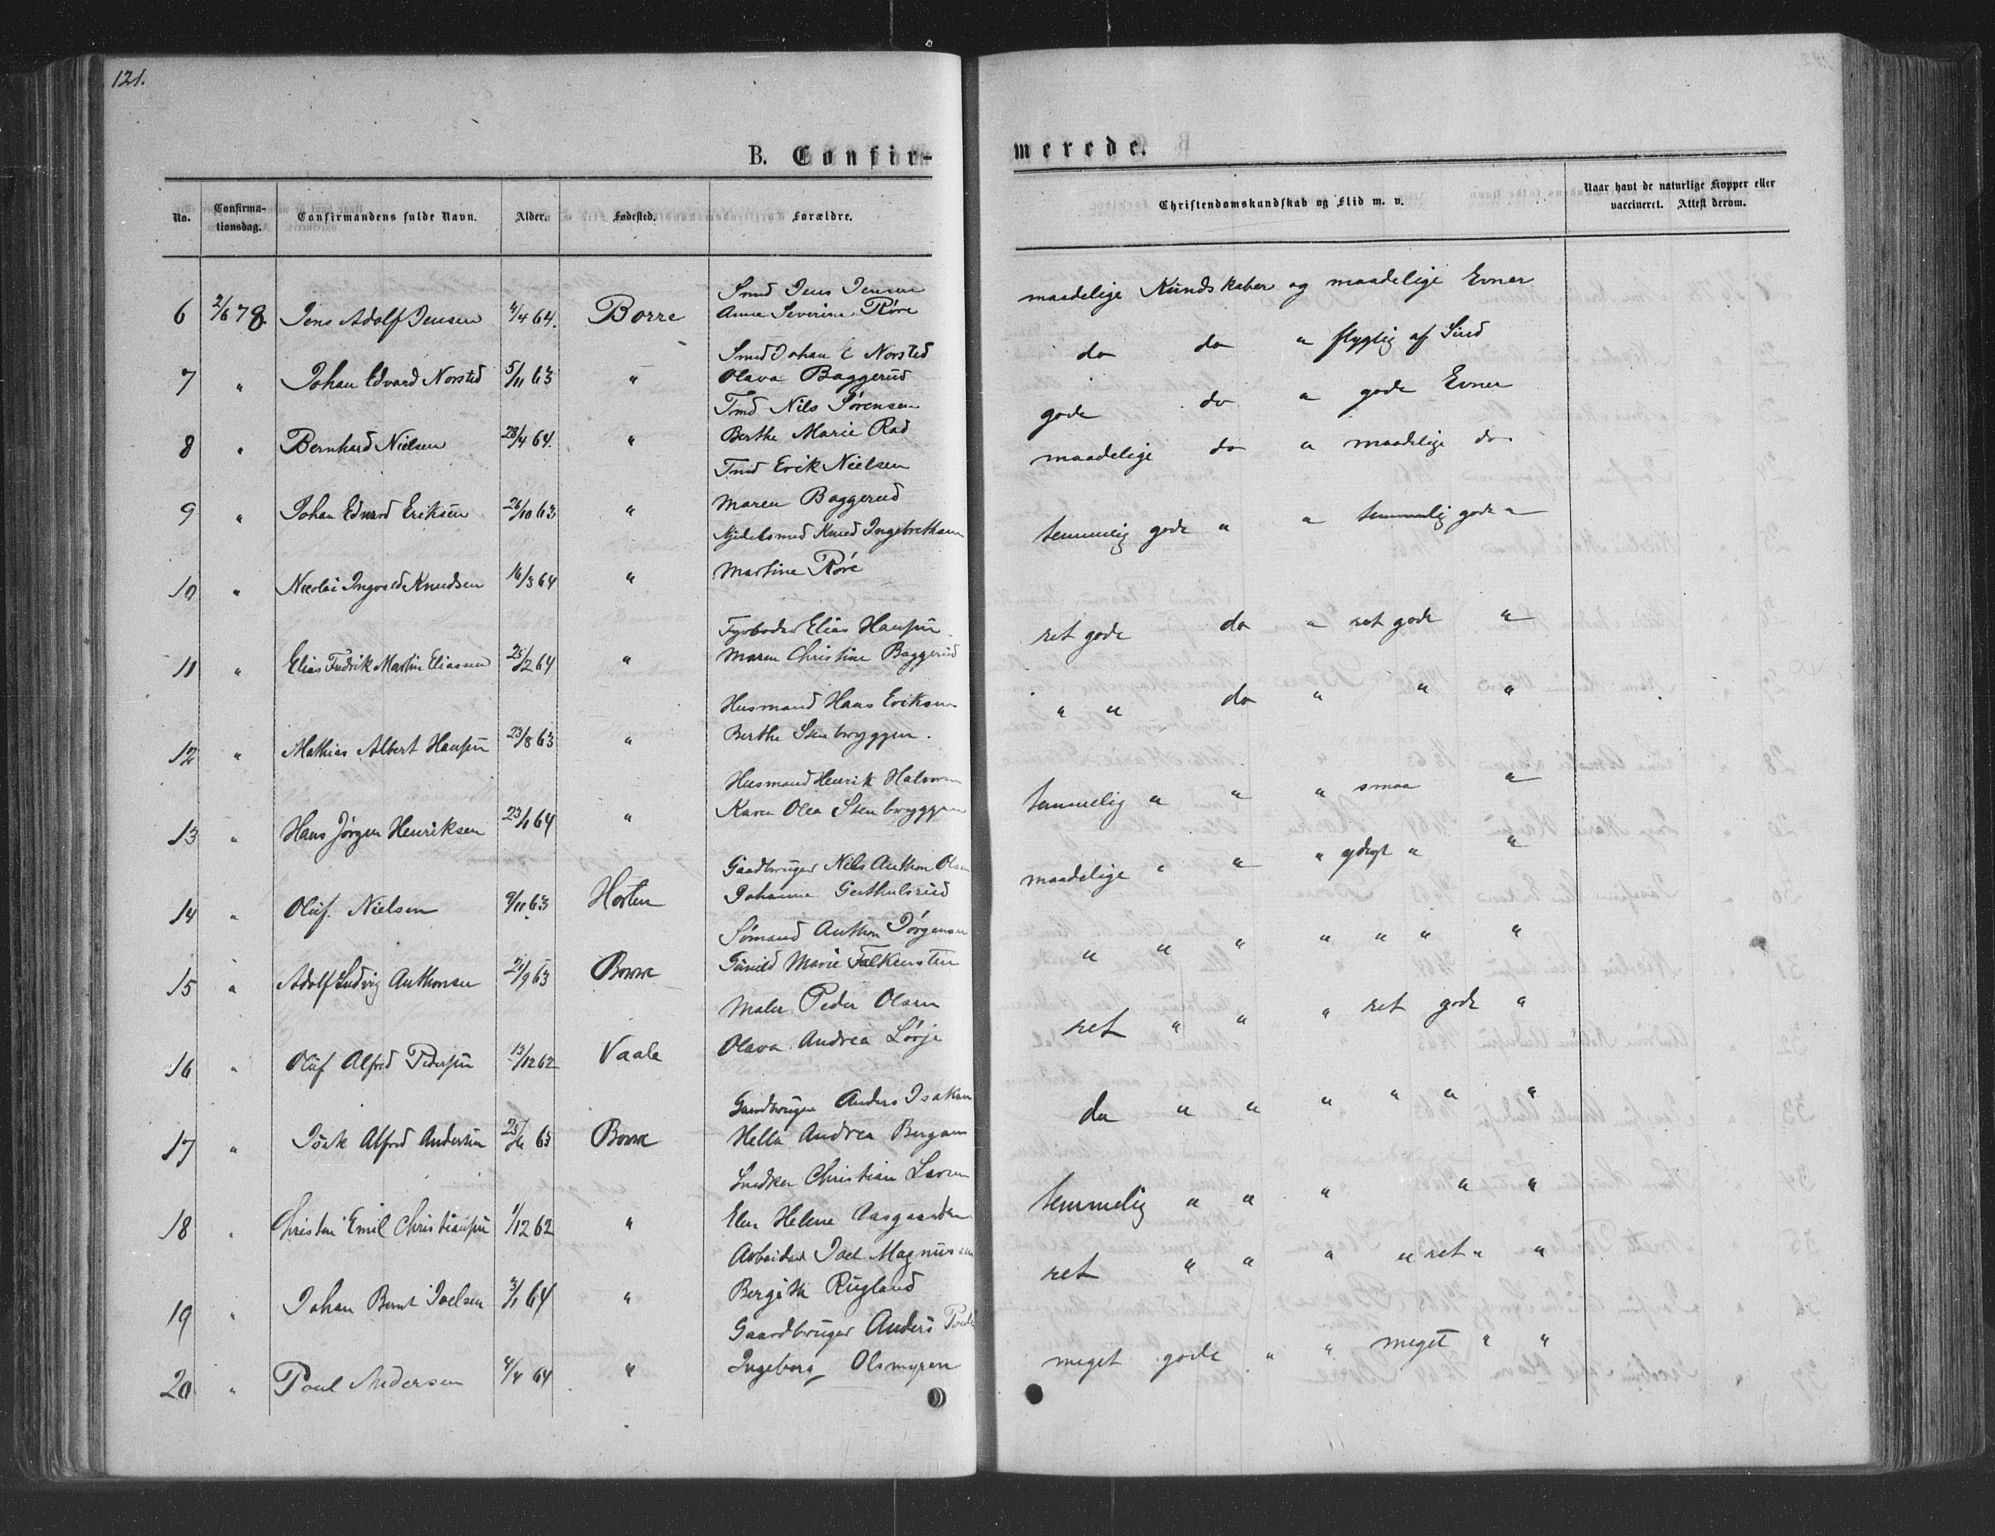 121.
B. Confir-
merede.
No.
Confirma-
tionsdag.
Confirmandens fulde Navn.
Alder.
Fødested.
Forældre.
Christendomskundskab og Flid m. v.
Naar havt de naturlige Kopper eller
vaccineret. Attest derom.
Smed Jens Jensen
6 2/6 78. Jens Adolf Jensen 4/4 64. Borre Anne Severine Røre maadelige Kundskaber og maadelige Evner
Smed Johan E Norsted
7 " Johan Edvard Norsted 5/11 63 " Olava Baggerud do do " flygtig af Sind
Tmd Nils Sørensen
8 " Bernhard Nielsen 28/4 64. " Berthe Marie Rad gode do " gode Evner
Tmd Erik Nielsen
9 " Johan Edvard Eriksen 26/10 63 " Maren Baggerud maadelige do " maadelige do
Kjedelsmed Knud Ingebrethsen
10 " Nicolai Ingvald Knudsen 16/3 64 " Martine Røre temmelig gode " " temmelig gode "
Fyrbøder Elias Hansen
11 " Elias Fredrik Martin Eliassen 25/2 64 " Maren Christine Baggerud ret gode do " ret gode "
Husmand Hans Eriksen
12 " Mathias Albert Hansen 23/8 63 " Berthe Stenbryggen. " " do " " "
Husmand Henrik Halvorsen
13 " Hans Jørgen Henriksen 23/1 64 " Karen Olea Stenbryggen temmelig " " " smaa "
Gaardbruger Nils Anthon Olsen
14 " Oluf Nielsen 9/11 63 Horten Johanne Gerthulsrud maadelige " " " " "
Sømand Anthon Jørgensen
15 " Adolf Ludvig Anthonsen 21/9 63 Borre Gunild Marie Falkensten " " " " " " "
Maler Peder Olsen
16 " Oluf Alfred Pedersen 13/12 62 Vaale Olava Andrea Lørje ret " " " ret gode "
Gaardbruger Anders Isaksen
17 " Isak Alfred Andersen 25/ 63 Borre Helle Andrea Bergan do " " " " " "
Snedker Christian Larsen
18 " Christen Emil Christiansen 1/12 62 " Elen Helene Aasgaarden temmelig " " " " "
Arbeider Joel Magnussen
19 " Johan Bernt Joelsen 3/1 64 " Bergith Rugland ret " " " " ret " "
Gaardbruger Anders
20 " Poul Andersen 4/4 64 " Ingeborg Olsmyren meget gode " " meget " "